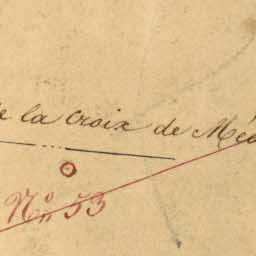 de la Croix de Mé
N° 53